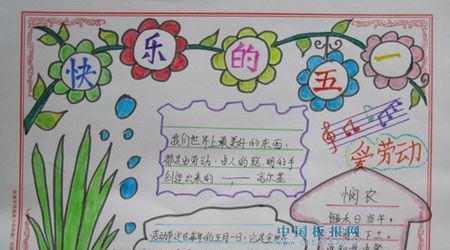 快乐的五一
爱劳动
我们世界上最美好的东西,
都是由劳动、由人的聪明的手
创造出来的 —— 高尔基
悯农
锄禾日当午,
劳动节定在每年的五月一日,它是全
中国板报网